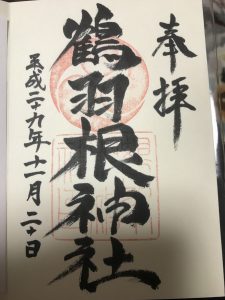 奉拝
鶴羽根神社
平成二十九年十一月二十日